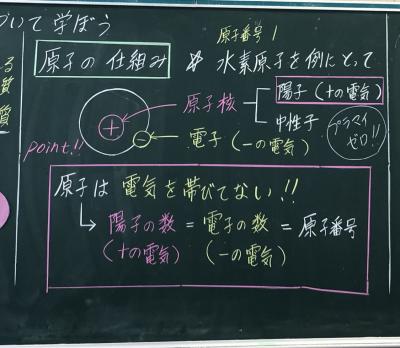 づいて学ぼう
原子番号1
原子の仕組み ※ 水素原子を例にとって
る
質
質
原子核
陽子(+の電気)
中性子
プラマイゼロ!!
+
-
電子(-の電気)
point!!
原子は電気を帯びてない!!
↳ 陽子の数 = 電子の数 = 原子番号
(+の電気) (-の電気)